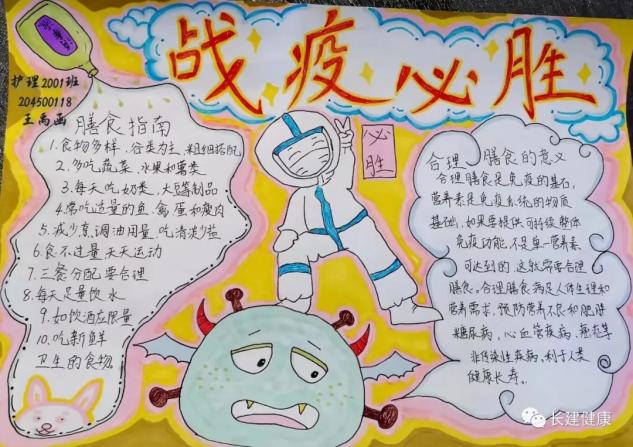 战疫必胜
护理2001班
204500118
王禹函
膳食指南
1.食物多样、谷类为主、粗细搭配
2.多吃蔬菜、水果和薯类
3.每天吃奶类、大豆制品
4.常吃适量的鱼、禽、蛋和瘦肉
5.减少烹调油用量、吃清淡少盐
6.食不过量天天运动
7.三餐分配要合理
8.每天足量饮水
9.如饮酒应限量
10.吃新鲜
卫生的食物
必胜
合理膳食的意义
合理膳食是免疫的基石,
营养素是免疫系统的物质
基础,如果要提供可持续整体
免疫功能,不是单一营养素
可达到的,这就需要合理
膳食。合理膳食满足人体生理和
营养需求,预防营养不良和肥胖
糖尿病,心血管疾病,癌症等
非传染性疾病,利于人类
健康长寿。
长建健康